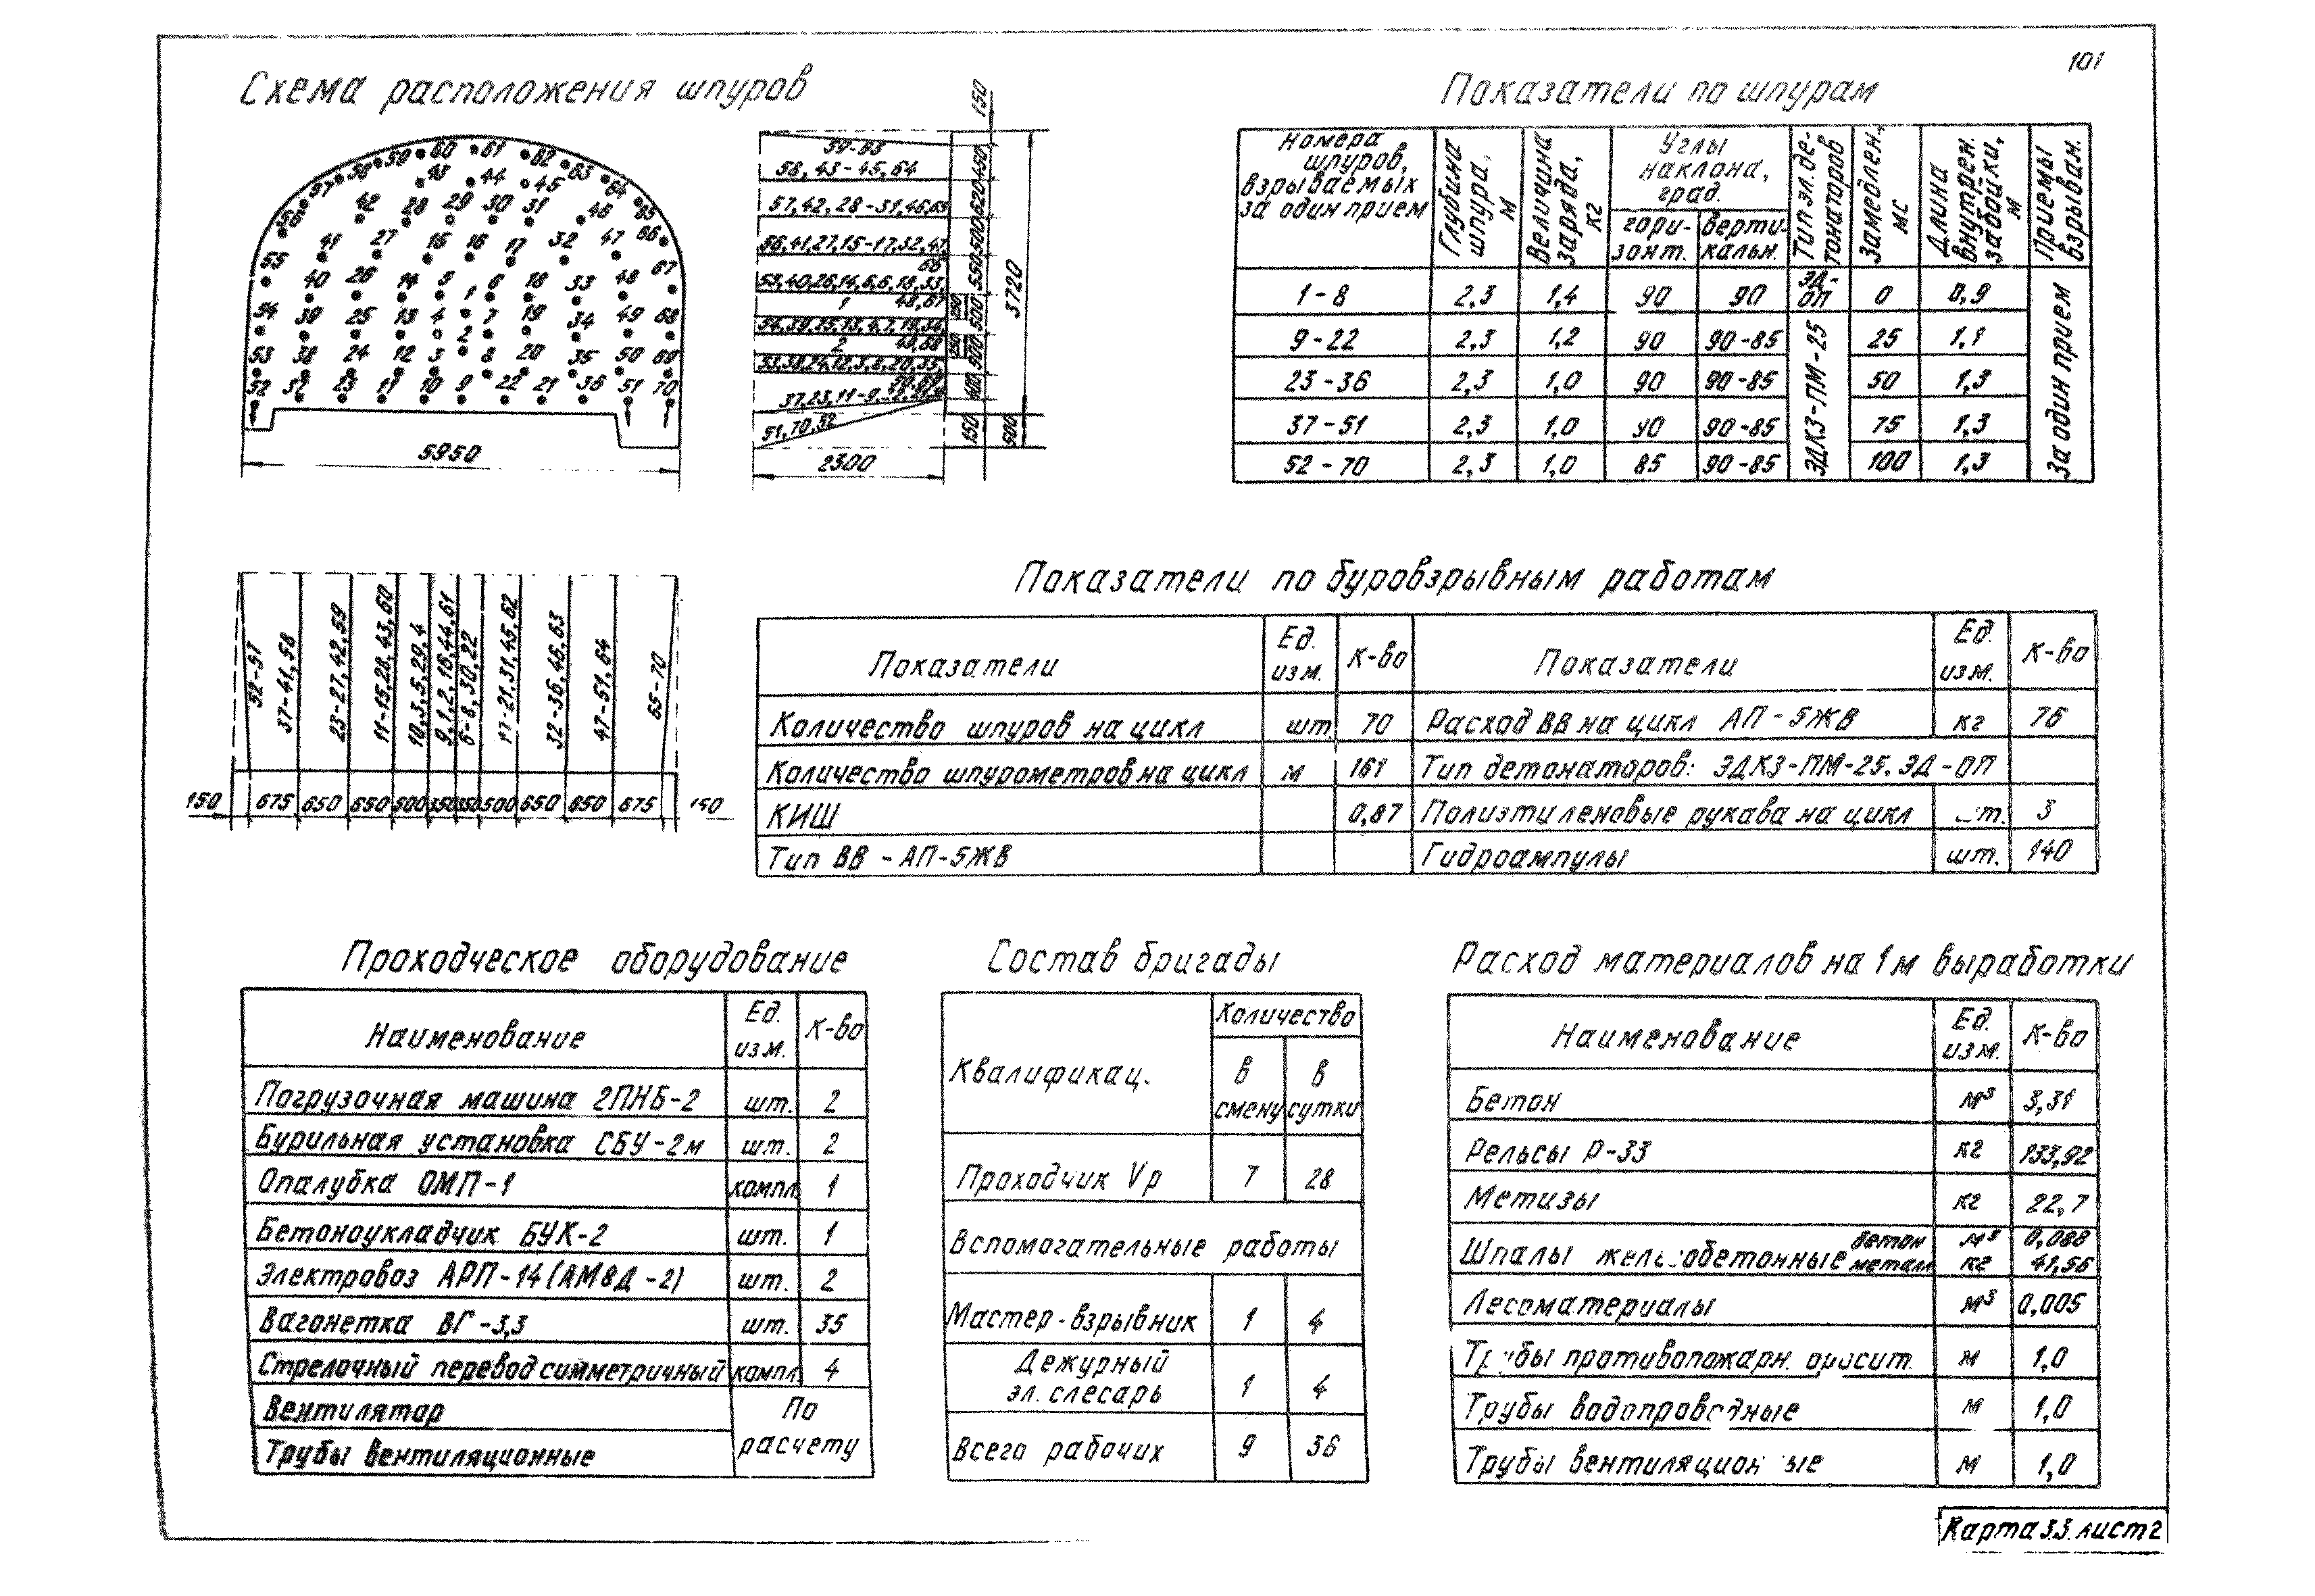 101
Схема расположения шпуров
52 53 54 55 56 57 58 59 60 61 62 63 64 65 66 67 68 69 70
43 44 45
42 28 29 30 31 46
41 27 15 16 17 32 47
40 26 14 5 6 18 33 48
39 25 13 4 1 7 19 34 49
38 24 12 3 2 8 20 35 50
37 23 11 10 9 22 21 36 51
5950
59-63
58, 43-45, 64
57, 42, 28-31, 46, 65
56, 41, 27, 15-17, 32, 47,
66
55, 40, 26, 14, 5, 6, 18, 33,
1 48, 67
54, 39, 25, 13, 4, 7, 19, 34,
2 49, 68
53, 38, 24, 12, 3, 8, 20, 35,
51, 70, 52
2300
150
450
620
500
550
500
250
500
250
400
150
500
3720
52-57
37-41, 58
23-27, 42, 59
11-15, 28, 43, 60
10, 3, 5, 29, 4
9, 1, 2, 16, 44, 61
6-8, 30, 22
17-21, 31, 45, 62
32-36, 46, 63
47-51, 64
65-70
150 675 650 650 500 350 350 500 650 650 675 150
Показатели по шпурам
Номера шпуров, взрываемых за один прием
Глубина шпура, м
Величина заряда, кг
Углы наклона, град.
гори-зонт.
верти-кальн.
Тип эл. де-тонаторов
Замедлен., мс
Длина внутрен. забойки, м
Приемы взрыван.
1-8 2,3 1,4 90 90 ЭД-ОП 0 0,9
9-22 2,3 1,2 90 90-85 25 1,1
23-36 2,3 1,0 90 90-85 50 1,3
37-51 2,3 1,0 90 90-85 75 1,3
52-70 2,3 1,0 85 90-85 100 1,3
ЭДКЗ-ПМ-25
За один прием
Показатели по буровзрывным работам
Показатели Ед. изм. К-во Показатели Ед. изм. К-во
Количество шпуров на цикл шт. 70 Расход ВВ на цикл АП-5ЖВ кг 76
Количество шпурометров на цикл м 161 Тип детонаторов: ЭДКЗ-ПМ-25. ЭД-ОП
КИШ 0,87 Полиэтиленовые рукава на цикл шт. 3
Тип ВВ - АП-5ЖВ Гидроампулы шт. 140
Проходческое оборудование
Наименование Ед. изм. К-во
Погрузочная машина 2ПНБ-2 шт. 2
Бурильная установка СБУ-2м шт. 2
Опалубка ОМП-1 компл. 1
Бетоноукладчик БУК-2 шт. 1
Электровоз АРП-14 (АМ8Д-2) шт. 2
Вагонетка ВГ-3,3 шт. 35
Стрелочный перевод симметричный компл. 4
Вентилятор
Трубы вентиляционные
По расчету
Состав бригады
Квалификац. Количество
в смену в сутки
Проходчик Vр 7 28
Вспомогательные работы
Мастер-взрывник 1 4
Дежурный эл. слесарь 1 4
Всего рабочих 9 36
Расход материалов на 1 м выработки
Наименование Ед. изм. К-во
Бетон м³ 3,31
Рельсы Р-33 кг 133,92
Метизы кг 22,7
Шпалы железобетонные бетон м³ 0,088
металл кг 41,56
Лесоматериалы м³ 0,005
Трубы противопожарн. оросит. м 1,0
Трубы водопроводные м 1,0
Трубы вентиляционные м 1,0
Карта 3.3. лист 2